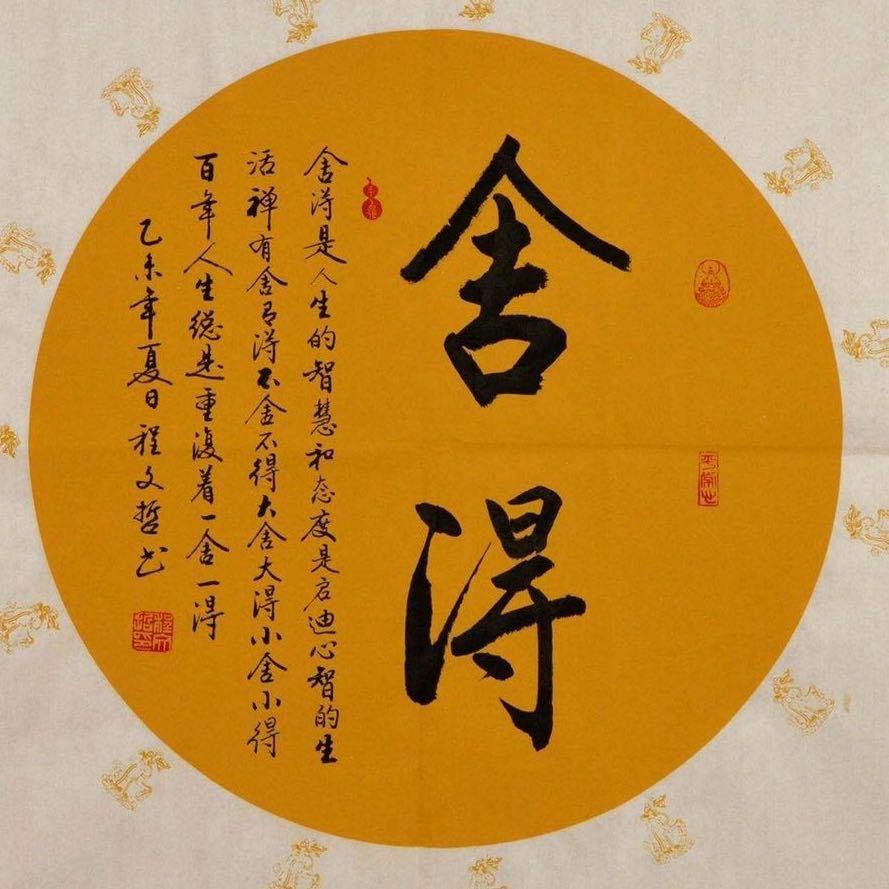 舍得
舍得是人生的智慧和态度是启迪心智的生
活禅有舍有得不舍不得大舍大得小舍小得
百年人生总是重复着一舍一得
乙未年夏日程文哲书